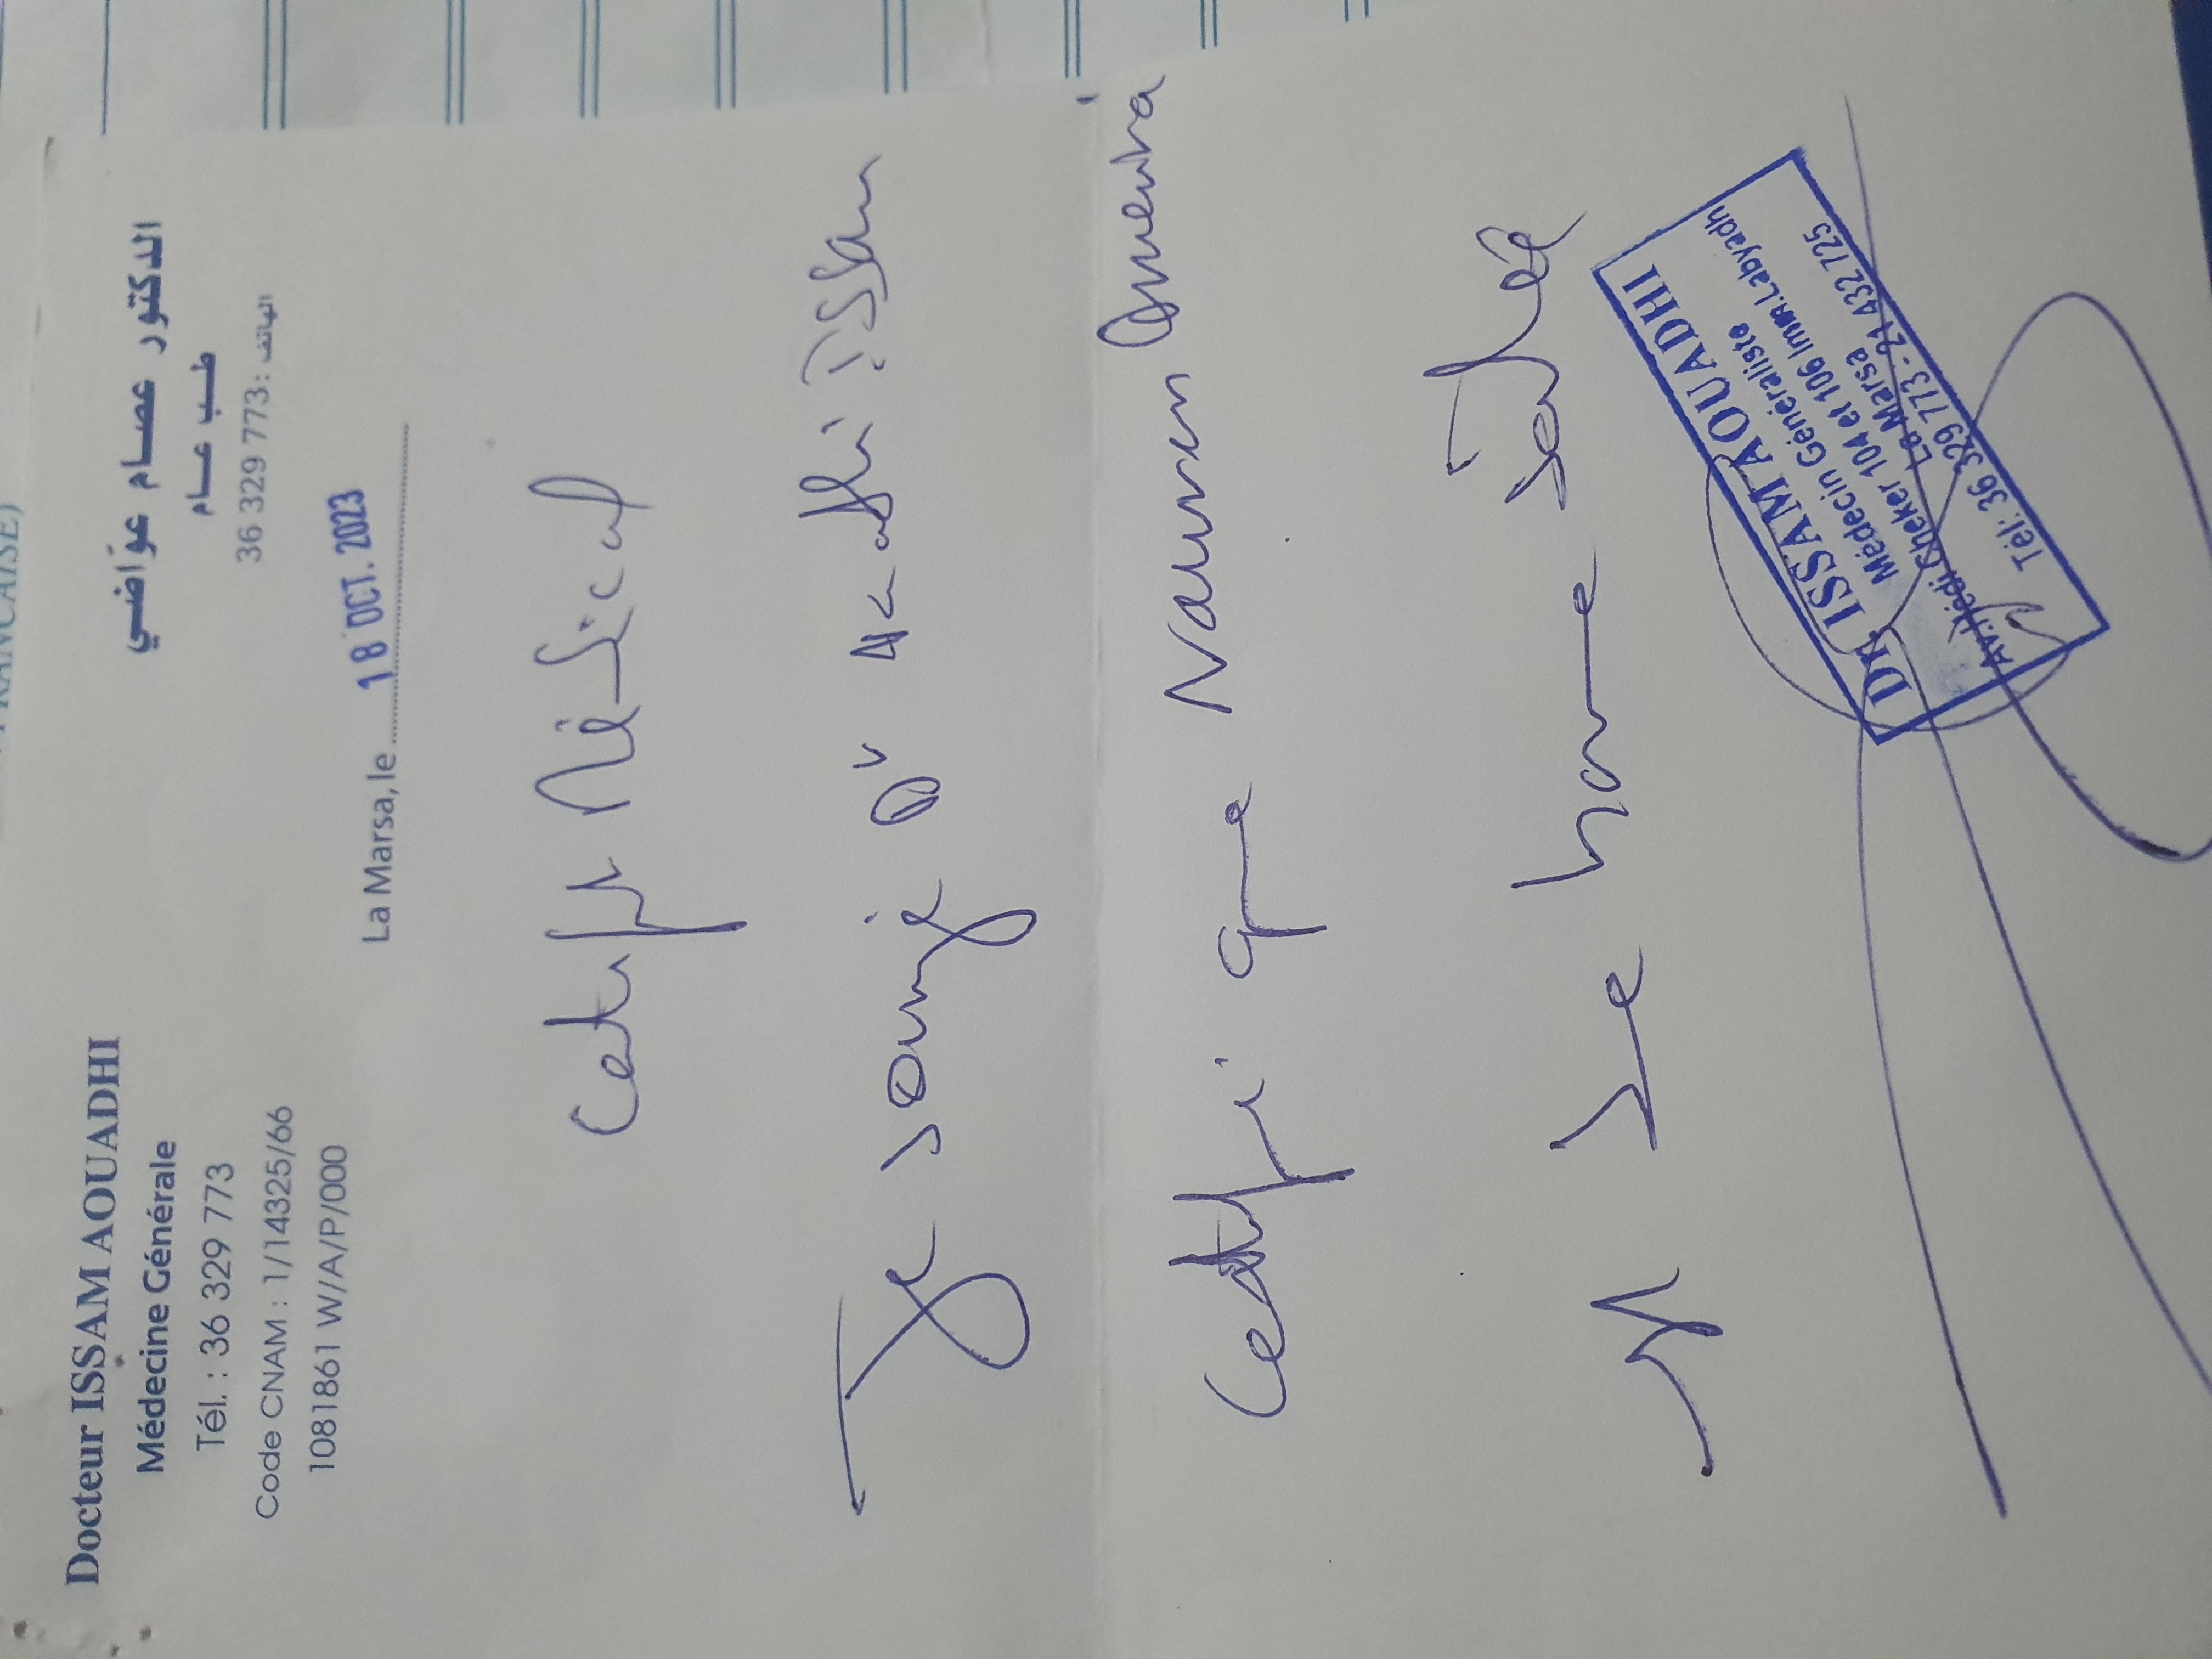 FRANÇAISE)
Docteur ISSAM AOUADHI
Médecine Générale
Tél. : 36 329 773
Code CNAM : 1/14325/66
1081861 W/A/P/000
الدكتور عصام عوّاضي
طب عام
الهاتف: 773 329 36
La Marsa, le 18 OCT. 2023
Certificat Médical
Je soussigné Dr Aouadhi Issam
Certifie que
est de bonne santé
DR. ISSAM AOUADHI
Médecin Généraliste
Av. Hédi Cheker 104 et 106 Imm. Labyadh
La Marsa
Tél: 36 329 773 - 21 432 725